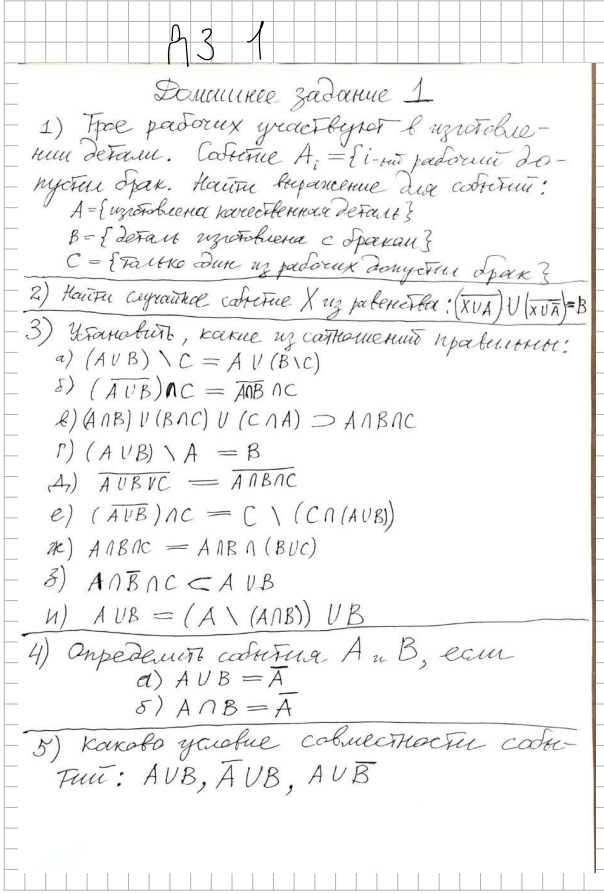 ДЗ 1
Домашнее задание 1
1) Трое рабочих участвуют в изготовле-
нии детали. Событие Aᵢ = {i-ый рабочий до-
пустил брак. Найти выражение для событий:
A = {изготовлена качественная деталь}
B = {деталь изготовлена с браком}
C = {только один из рабочих допустил брак}
2) Найти случайное событие X из равенства: (X̅ ∪̅ A̅) ∪ (X̅ ∪̅ A̅̅) = B
3) Установить, какие из соотношений правильны:
а) (A ∪ B) \ C = A ∪ (B \ C)
б) (A̅ ∪̅ B̅) ∩ C = A̅ ∩̅ B̅ ∩ C
в) (A ∩ B) ∪ (B ∩ C) ∪ (C ∩ A) ⊃ A ∩ B ∩ C
г) (A ∪ B) \ A = B
д) A̅ ∪̅ B̅ ∪̅ C̅ = A̅ ∩̅ B̅ ∩̅ C̅
е) (A̅ ∪̅ B̅) ∩ C = C \ (C ∩ (A ∪ B))
ж) A ∩ B ∩ C = A ∩ B ∩ (B ∪ C)
з) A ∩ B̅ ∩ C ⊂ A ∪ B
и) A ∪ B = (A \ (A ∩ B)) ∪ B
4) Определить события A и B, если
а) A ∪ B = A̅
б) A ∩ B = A̅
5) Каково условие совместности собы-
тий: A ∪ B, A̅ ∪ B, A ∪ B̅